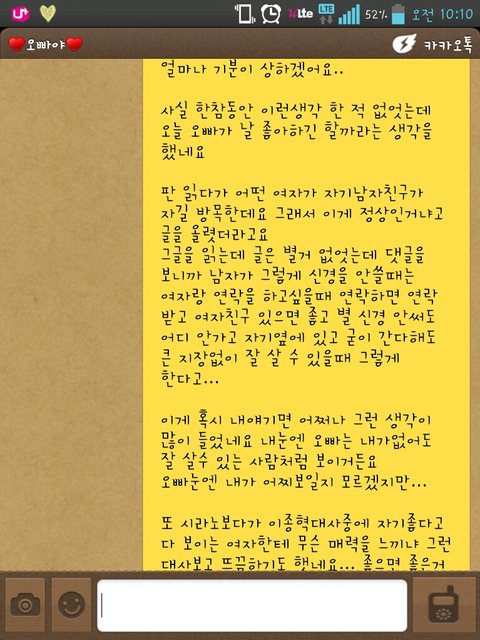 U+ LTE LTE 52% 오전 10:10
❤️오빠야❤️ 카카오톡
얼마나 기분이 상하겠어요..
사실 한참동안 이런생각 한 적 없엇는데
오늘 오빠가 날 좋아하긴 할까라는 생각을
했네요
판 읽다가 어떤 여자가 자기남자친구가
자길 방목한데요 그래서 이게 정상인거냐고
글을 올렷더라고요
그글을 읽는데 글은 별거 없엇는데 댓글을
보니까 남자가 그렇게 신경을 안쓸때는
여자랑 연락을 하고싶을때 연락하면 연락
받고 여자친구 있으면 좋고 별 신경 안써도
어디 안가고 자기옆에 있고 굳이 간다해도
큰 지장없이 잘 살 수 있을때 그렇게
한다고...
이게 혹시 내얘기면 어쩌나 그런 생각이
많이 들었네요 내눈엔 오빠는 내가없어도
잘 살수 있는 사람처럼 보이거든요
오빠눈엔 내가 어찌보일지 모르겠지만...
또 시라노보다가 이종혁대사중에 자기좋다고
다 보이는 여자한테 무슨 매력을 느끼냐 그런
대사보고 뜨끔하기도 했네요... 좋으면 좋은거